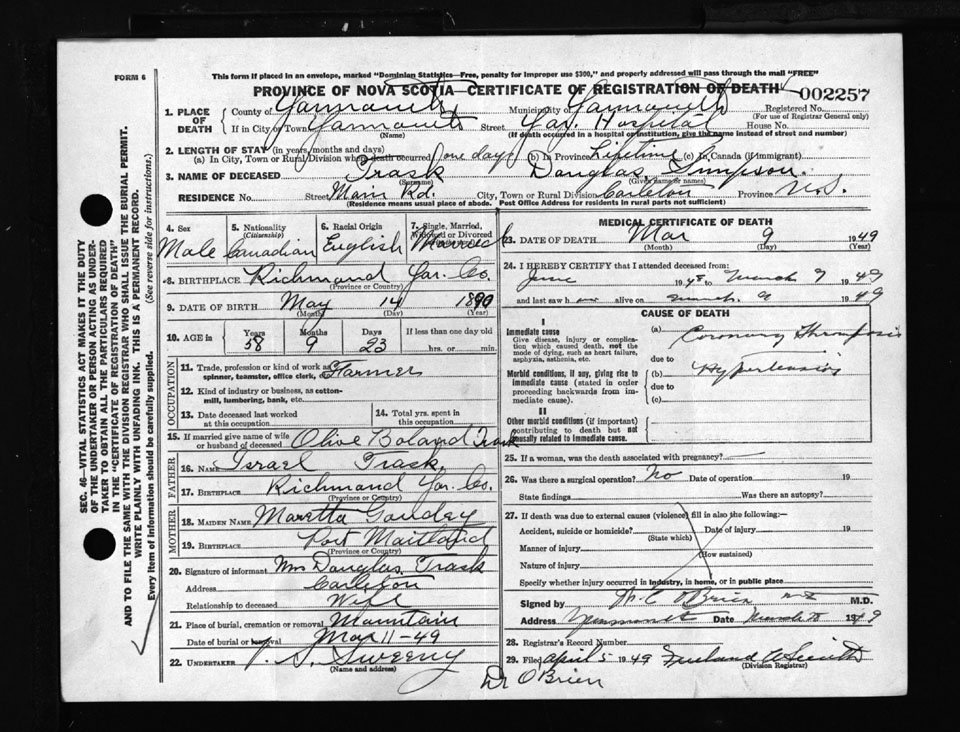 FORM 6
This form if placed in an envelope, marked "Dominian Statistics—Free, penalty for improper use $300," and properly addressed will pass through the mail "FREE"
PROVINCE OF NOVA SCOTIA—CERTIFICATE OF REGISTRATION OF DEATH 002257
1. PLACE OF DEATH County of Yarmouth Municipality of Yarmouth Registered No.
(For use of Registrar General only)
If in City or Town Yarmouth Street Yar. Hospital House No.
(Name) (If death occurred in a hospital or institution, give the name instead of street and number)
2. LENGTH OF STAY (in years, months and days)
(a) In City, Town or Rural Division where death occurred one day (b) In Province Lifetime (c) In Canada (if immigrant)
3. NAME OF DECEASED Trask Douglas Simpson
(Surname) (Given name or names)
RESIDENCE No. Street Main Rd. City, Town or Rural Division Carleton Province N.S.
(Residence means usual place of abode. Post Office Address for residents in rural parts not sufficient)
4. Sex Male
5. Nationality (Citizenship) Canadian
6. Racial Origin English
7. Single, Married, Widowed or Divorced Married
8. BIRTHPLACE Richmond Yar. Co.
(Province or Country)
9. DATE OF BIRTH May 14 1890
(Month) (Day) (Year)
10. AGE in Years Months Days If less than one day old
58 9 23 hrs. or min.
OCCUPATION
11. Trade, profession or kind of work as spinner, teamster, office clerk, etc. Farmer
12. Kind of industry or business, as cotton-mill, lumbering, bank, etc.
13. Date deceased last worked at this occupation
14. Total yrs. spent in this occupation
15. If married give name of wife or husband of deceased Olive Boland Trask
FATHER
16. NAME Israel Trask
17. BIRTHPLACE Richmond Yar. Co.
(Province or Country)
MOTHER
18. MAIDEN NAME Maretta Goudey
19. BIRTHPLACE Port Maitland
(Province or Country)
20. Signature of informant Mrs Douglas Trask
Address Carleton
Relationship to deceased Wife
21. Place of burial, cremation or removal Mountain
Date of burial or removal Mar 11-49
22. UNDERTAKER V. S. Sweeny
(Name and address)
MEDICAL CERTIFICATE OF DEATH
23. DATE OF DEATH Mar 9 1949
(Month) (Day) (Year)
24. I HEREBY CERTIFY that I attended deceased from:
June 1948 to March 9 1949
and last saw h alive on March 9 1949
CAUSE OF DEATH
I
Immediate cause
Give disease, injury or complication which caused death, not the mode of dying, such as heart failure, asphyxia, asthenia, etc.
(a) Coronary Thrombosis
due to
Morbid conditions, if any, giving rise to immediate cause (stated in order proceeding backwards from immediate cause).
(b) Hypertension
due to
(c)
II
Other morbid conditions (if important) contributing to death but not causally related to immediate cause.
25. If a woman, was the death associated with pregnancy?
26. Was there a surgical operation? No Date of operation 19
State findings Was there an autopsy?
27. If death was due to external causes (violence) fill in also the following:
Accident, suicide or homicide? Date of injury 19
(State which)
Manner of injury
(How sustained)
Nature of injury
Specify whether injury occurred in industry, in home, or in public place
Signed by O'Brien M.D.
Address Yarmouth Date March 1949
28. Registrar's Record Number
29. Filed April 5 1949
(Division Registrar)
Dr O'Brien
SEC. 46—VITAL STATISTICS ACT MAKES IT THE DUTY
OF THE UNDERTAKER OR PERSON ACTING AS UNDER-
TAKER TO OBTAIN ALL THE PARTICULARS REQUIRED
IN THE "CERTIFICATE OF REGISTRATION OF DEATH"
AND TO FILE THE SAME WITH THE DIVISION REGISTRAR WHO SHALL ISSUE THE BURIAL PERMIT.
WRITE PLAINLY WITH UNFADING INK. THIS IS A PERMANENT RECORD.
Every item of information should be carefully supplied. (See reverse side for instructions.)